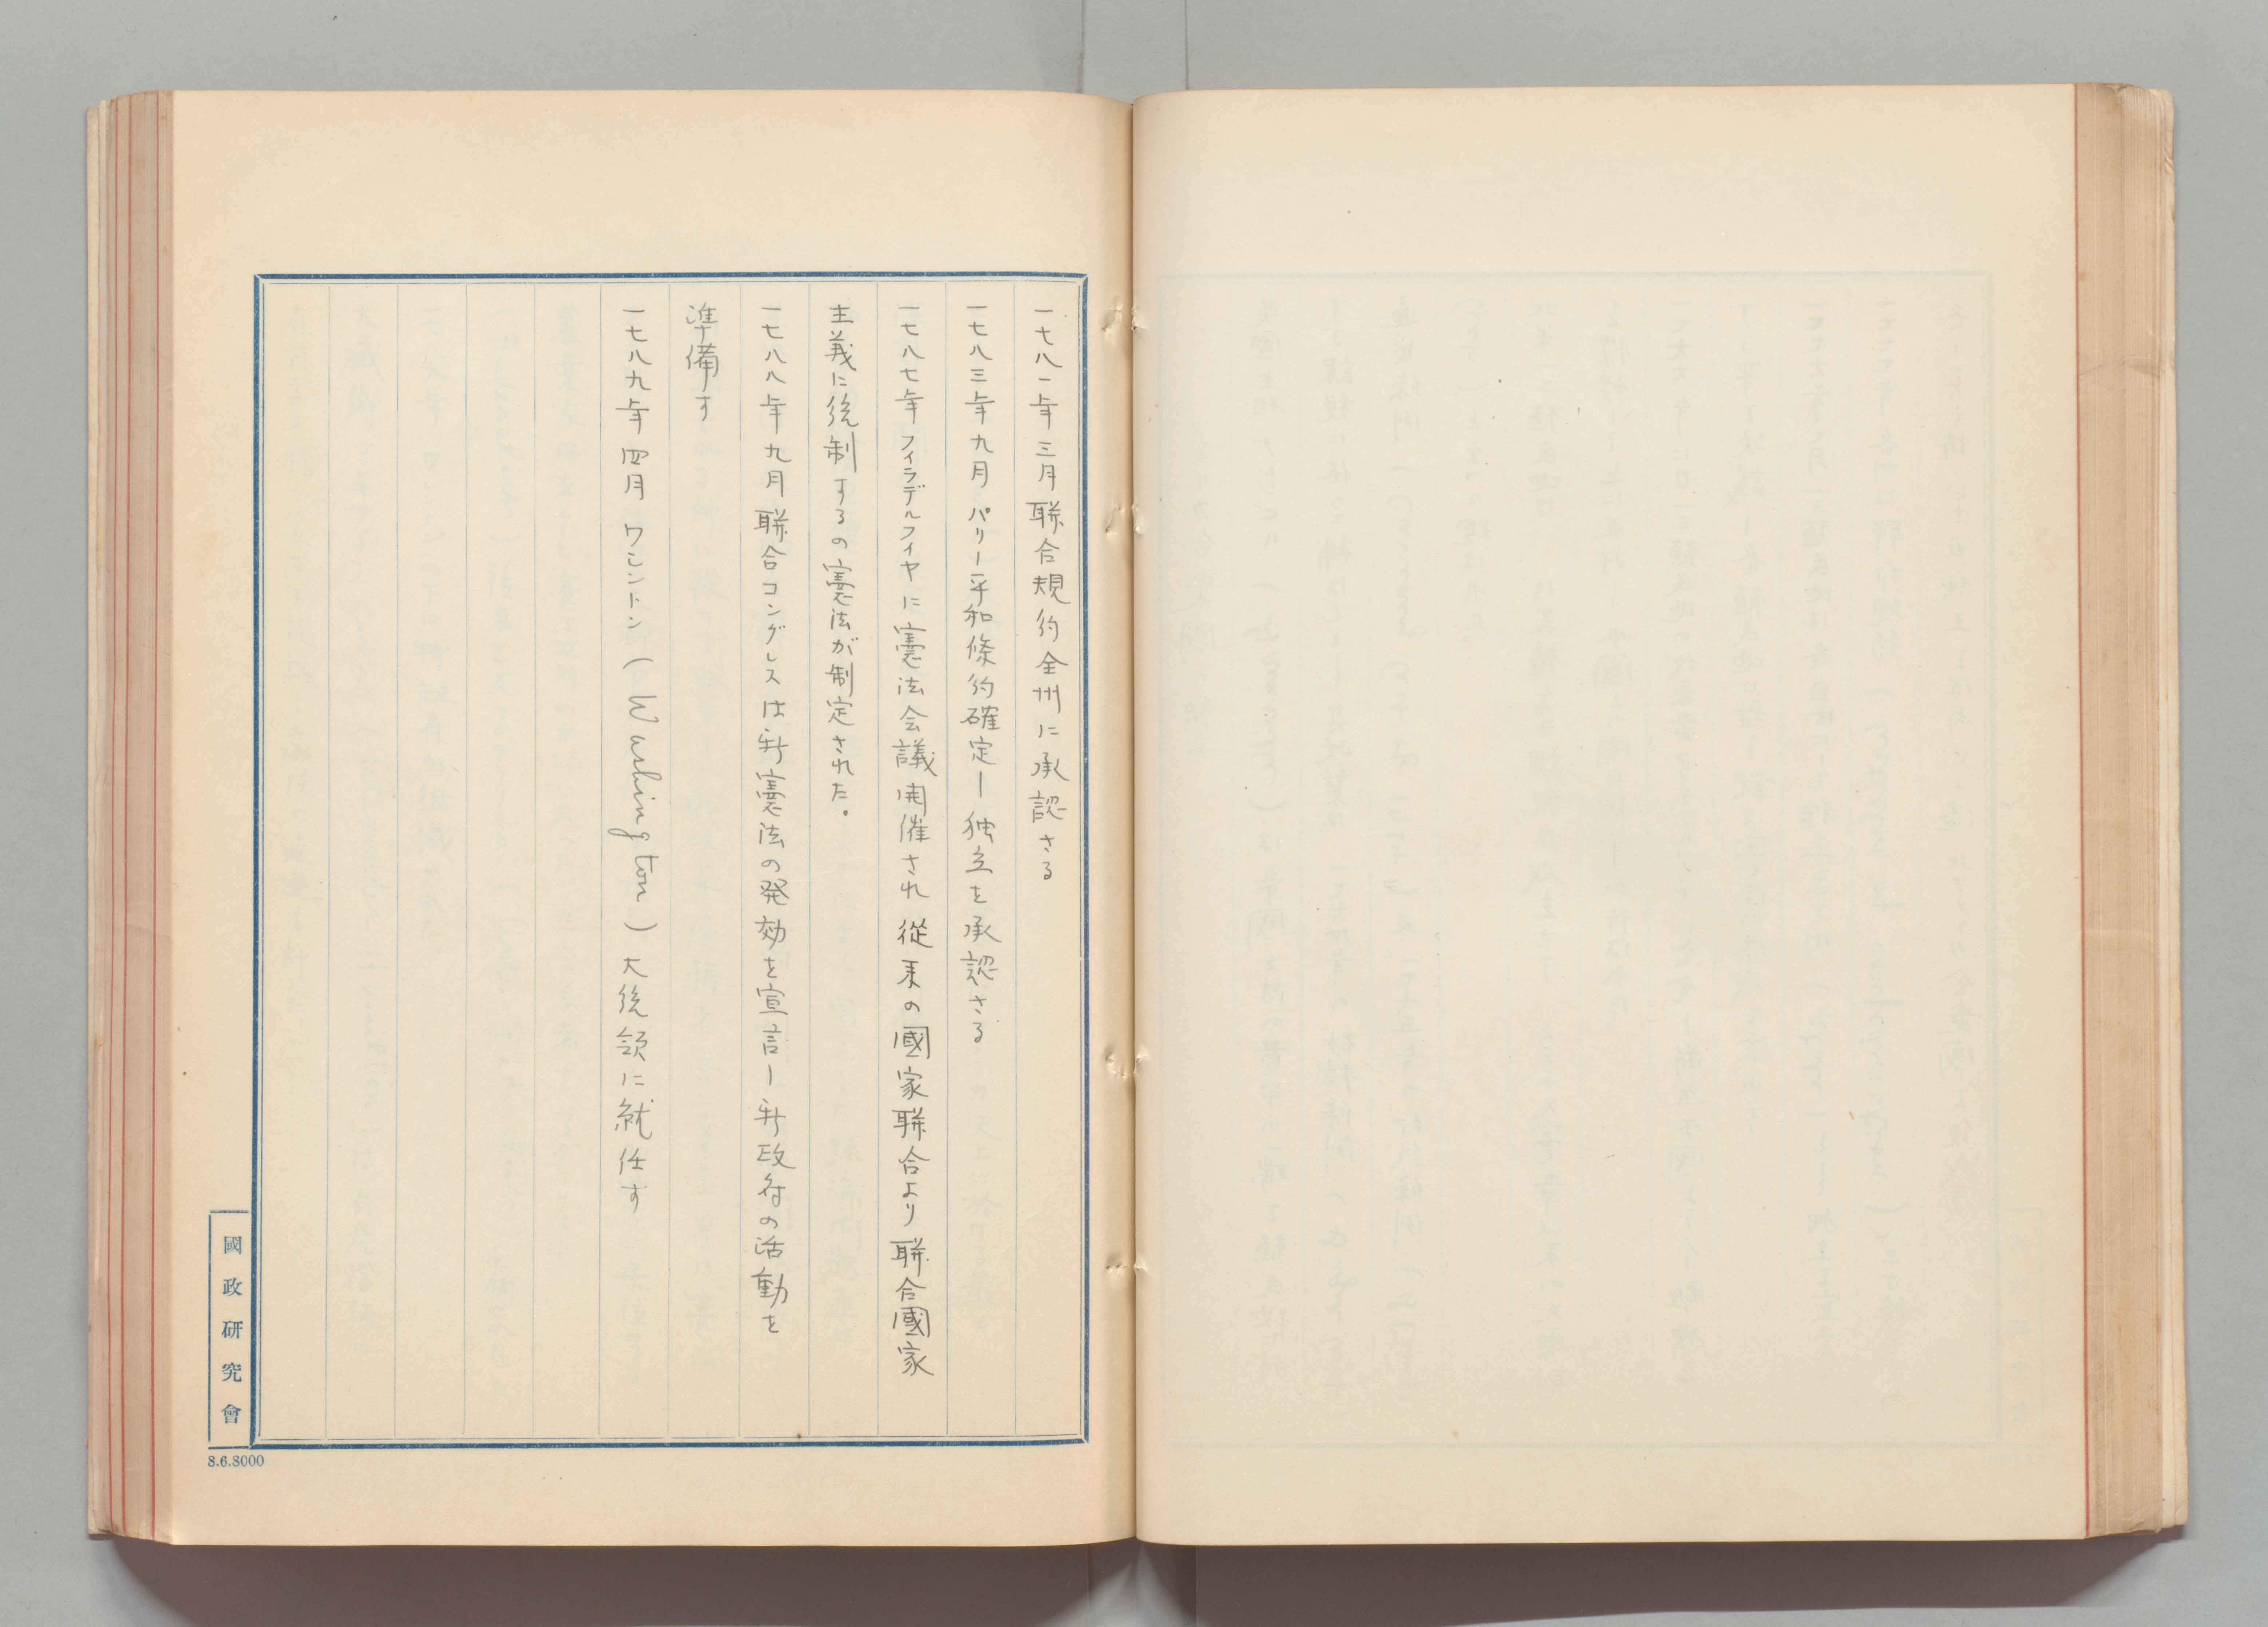 一七八一年三月聯合規約全州に承認さる
一七八三年九月パリー平和條約確定ー独立を承認さる
一七八七年フィラデルフィヤに憲法会議開催され従来の國家聯合より聯合國家
主義に統制するの憲法が制定された。
一七八八年九月聯合コングレスは新憲法の発効を宣言ー新政府の活動を
準備す
一七八九年四月ワシントン(Washington)大統領に就任す
國政研究會
8.6.8000